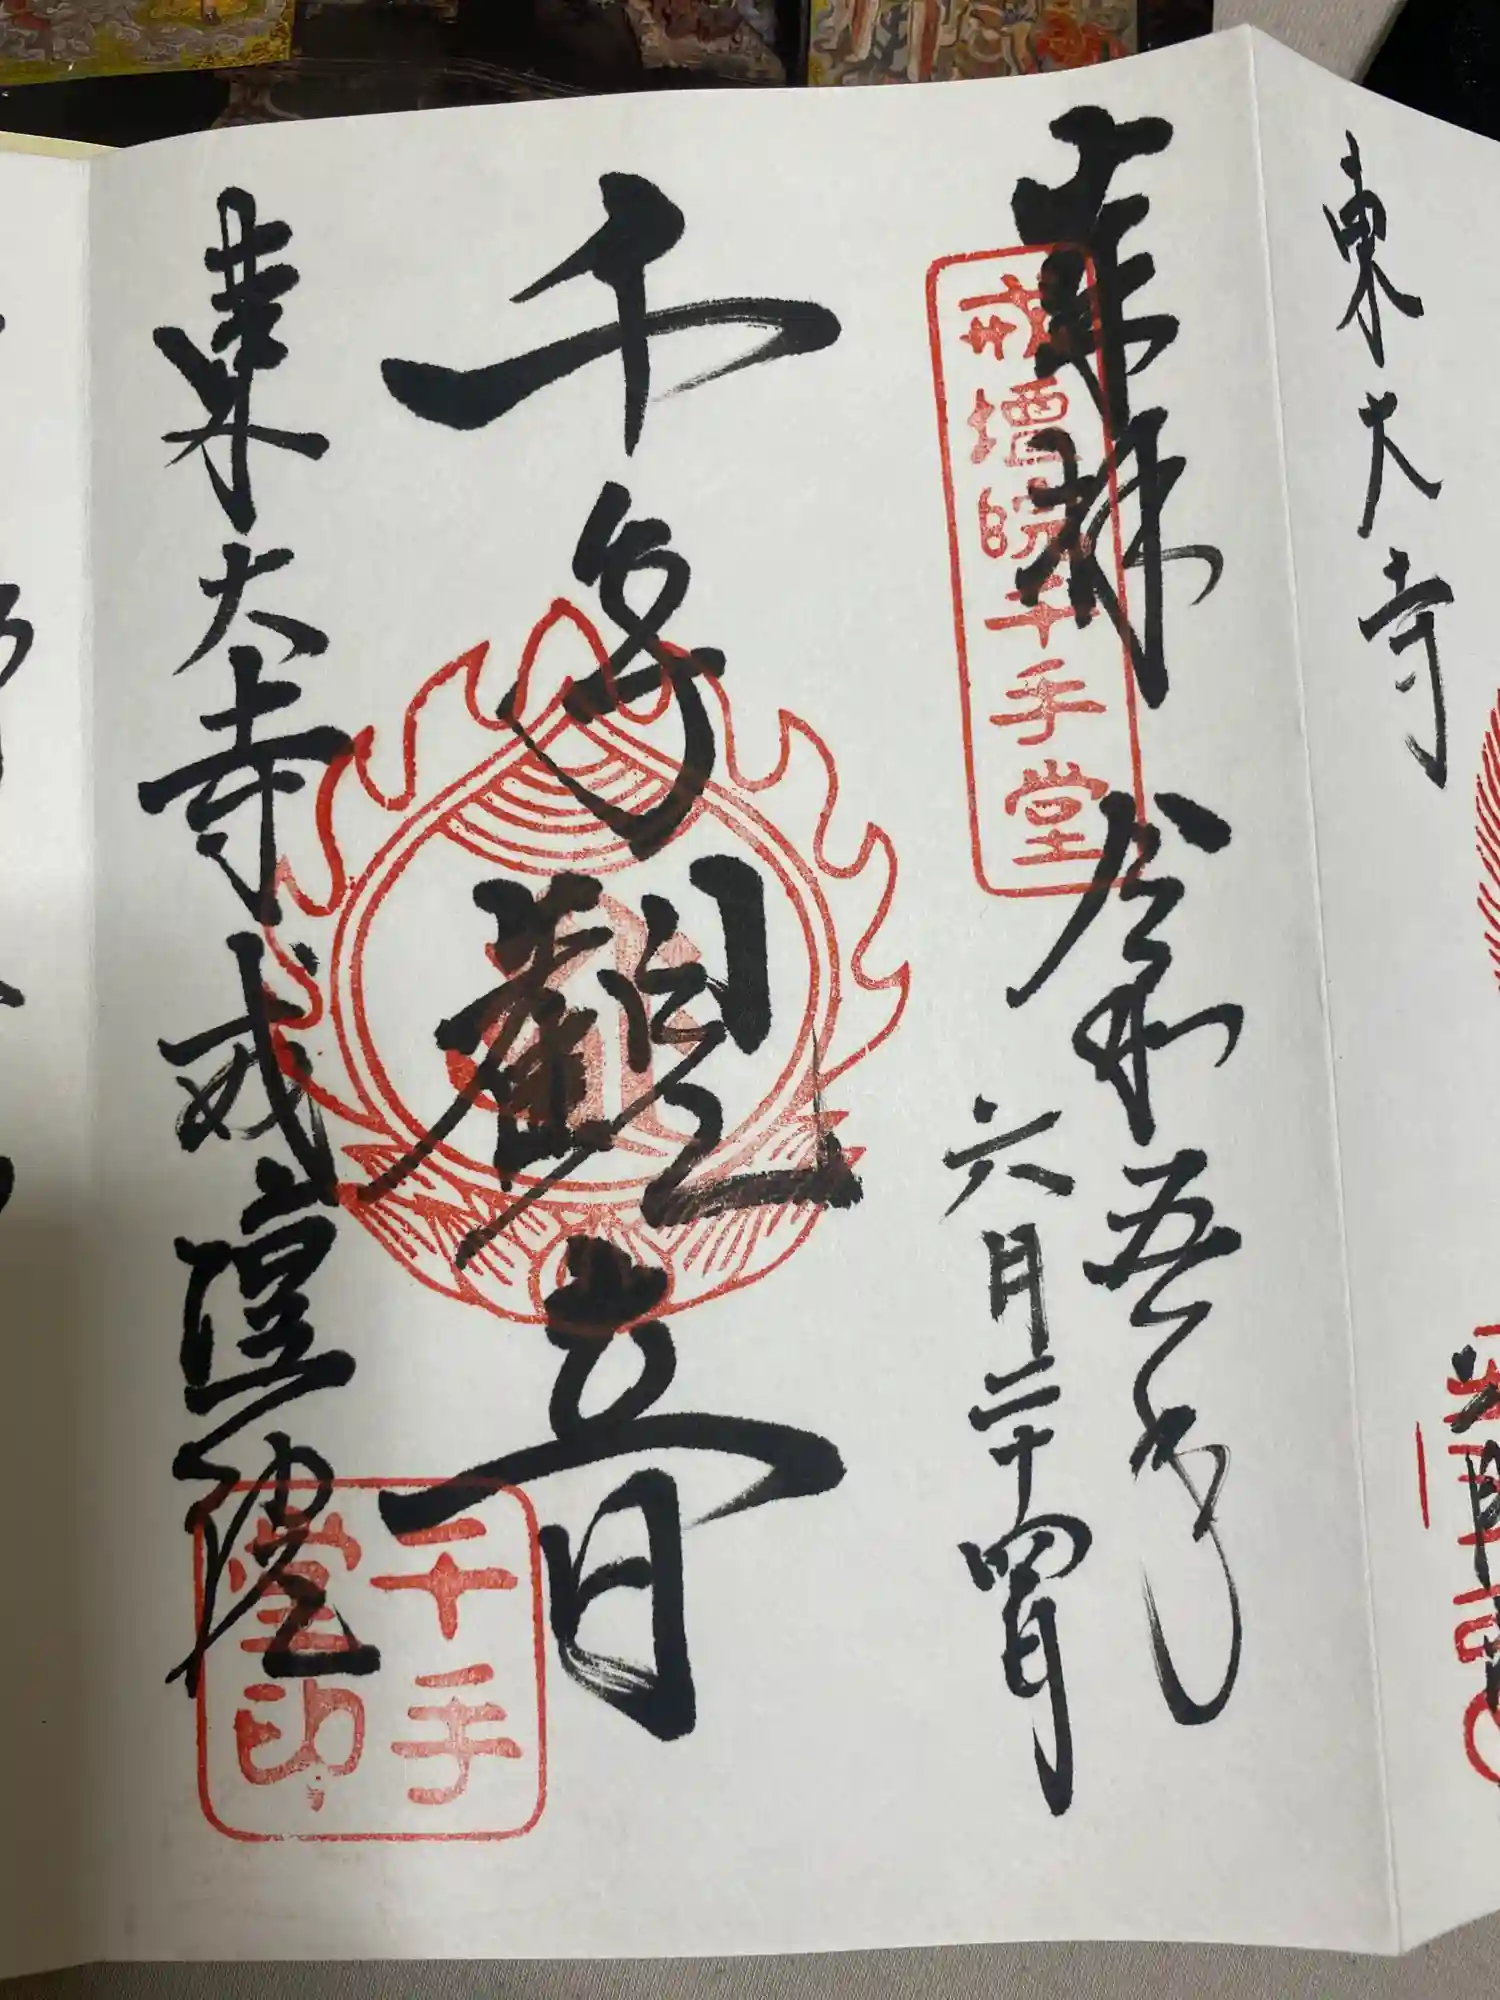 東大寺
奉拝
令和五年
六月二十四日
戒壇院千手堂
千手觀音
東大寺戒壇院
千手
堂印